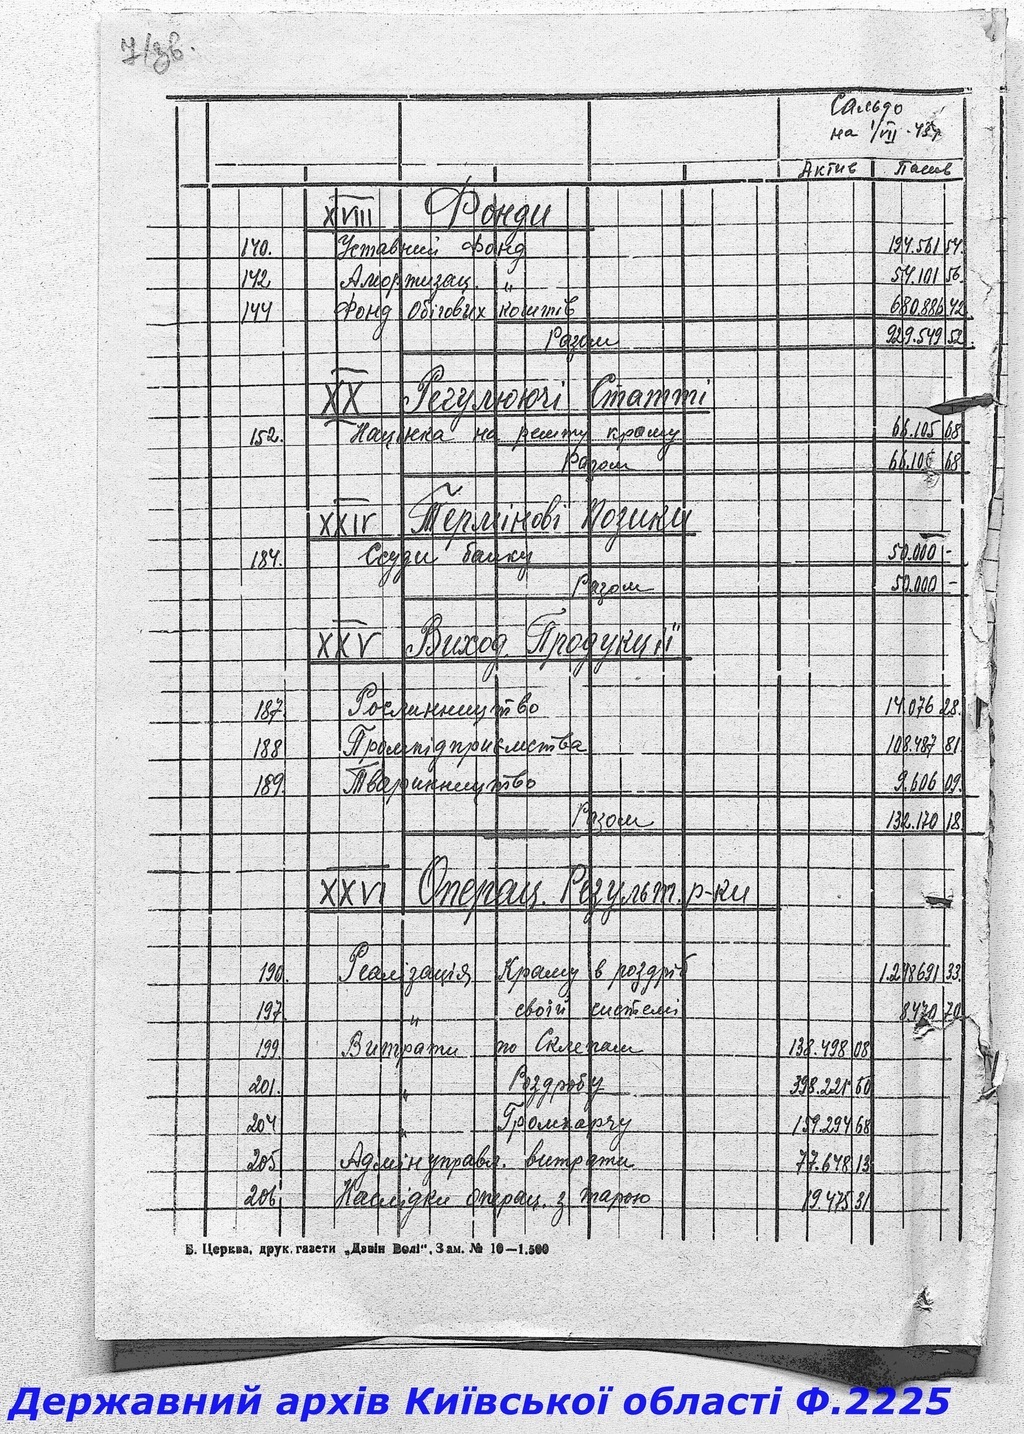 7/зв.
Сальдо
на 1/VII-43р
Актив Пасив
XVIII Фонди
140. Уставний Фонд 194.561 54
142 Амортизац. „ 54.101 56
144 Фонд Обігових коштів 680.886 42
Разом 929.549 52
XX Регулюючі Статті
152. Націнка на решту краму 66.105 68
Разом 66.105 68
XXIV Термінові Позики
184. Ссуди банку 50.000 -
Разом 50.000 -
XXV Виход. Продукції
187. Рослинництво 14.076 28.
188 Промпідприємства 108.487 81
189. Тваринництво 9.606 09.
Разом 132.170 18
XXVI Операц. Результ. р-ки
190. Реалізація Краму в роздріб 1.248691 33
197. „ своїй системі 8.470 70
199. Витрати по Склепам 138.498 08
201. „ Роздробу 398.221 60
204 „ Громхарчу 159.294 68
205. Адмінуправл. витрати 77.648 13
206. Наслідки операц. з тарою 19.475 31
Б. Церква, друк. газети „Дзвін Волі“. Зам. № 10—1.500
Державний архів Київської області Ф.2225